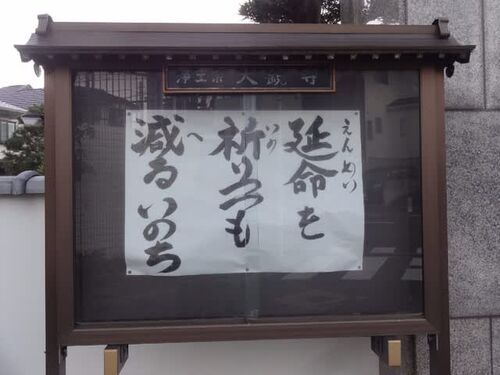 浄土宗 大厳寺
延命を
えんめい
祈りつつも
いの
減るいのち
へ